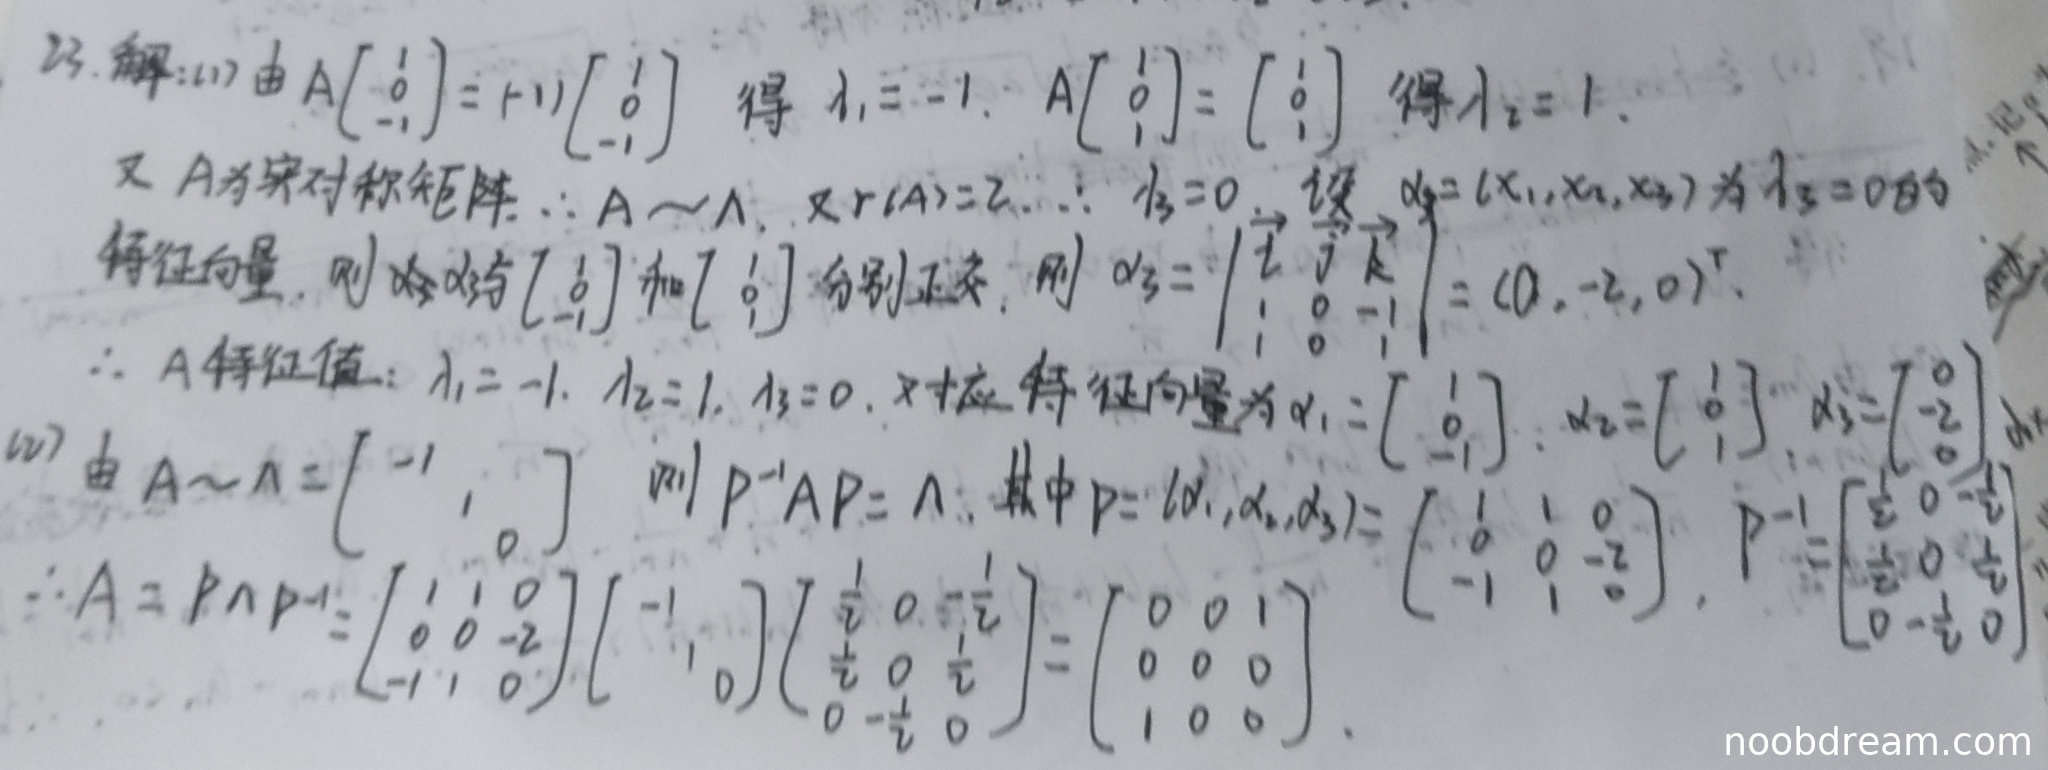 23. 解:(1) 由 A[1 0 -1] = (-1)[1 0 -1] 得 λ₁ = -1. A[1 0 1] = [1 0 1] 得 λ₂ = 1.
又 A为实对称矩阵. ∴ A ~ Λ. 又 r(A) = 2. ∴ λ₃ = 0. 设 α₃ = (x₁, x₂, x₃) 为 λ₃ = 0 的
特征向量. 则 α₃与[1 0 -1] 和 [1 0 1] 分别正交. 则 α₃ = |i j k; 1 0 -1; 1 0 1| = (0, -2, 0)ᵀ.
∴ A 特征值: λ₁ = -1. λ₂ = 1. λ₃ = 0. 对应特征向量为 α₁ = [1 0 -1]. α₂ = [1 0 1]. α₃ = [0 -2 0]
(2) 由 A ~ Λ = [-1 1 0] 则 P⁻¹AP = Λ. 其中 P = (α₁, α₂, α₃) = [1 1 0; 0 0 -2; -1 1 0]. P⁻¹ = [1/2 0 -1/2; 1/2 0 1/2; 0 -1/2 0]
∴ A = PΛP⁻¹ = [1 1 0; 0 0 -2; -1 1 0][-1 1 0][1/2 0 -1/2; 1/2 0 1/2; 0 -1/2 0] = [0 0 1; 0 0 0; 1 0 0].
noobdream.com